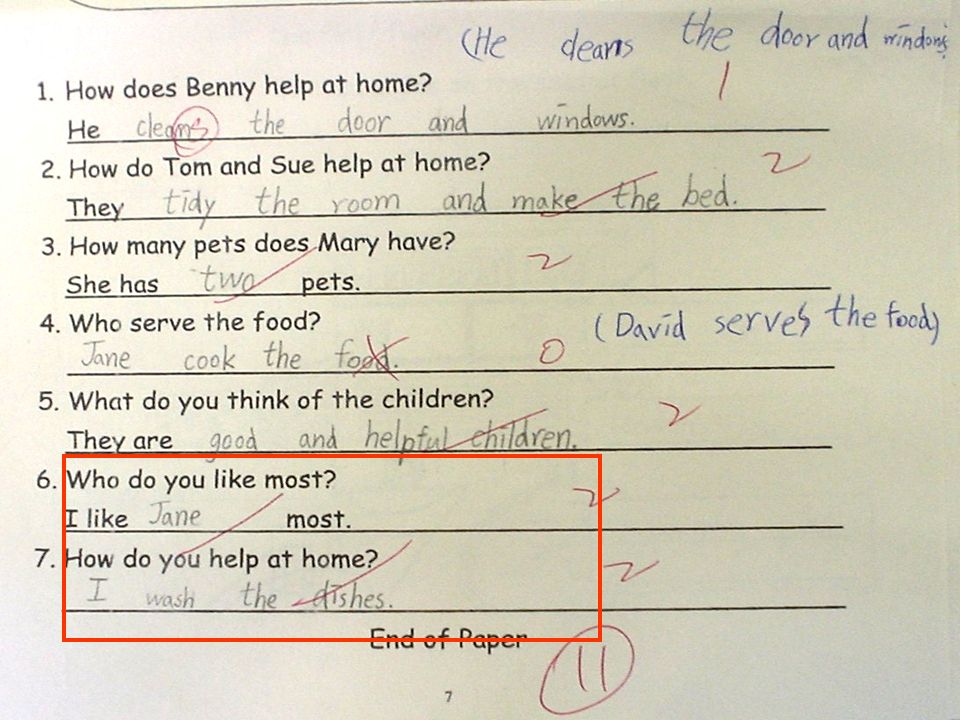 (He cleans the door and windows.
1. How does Benny help at home?
1
He cleans the door and windows.
2. How do Tom and Sue help at home?
2
They tidy the room and make the bed.
3. How many pets does Mary have?
2
She has two pets.
4. Who serve the food?
(David serves the food)
Jane cook the food.
0
5. What do you think of the children?
2
They are good and helpful children.
6. Who do you like most?
2
I like Jane most.
7. How do you help at home?
2
I wash the dishes.
End of Paper
11
7